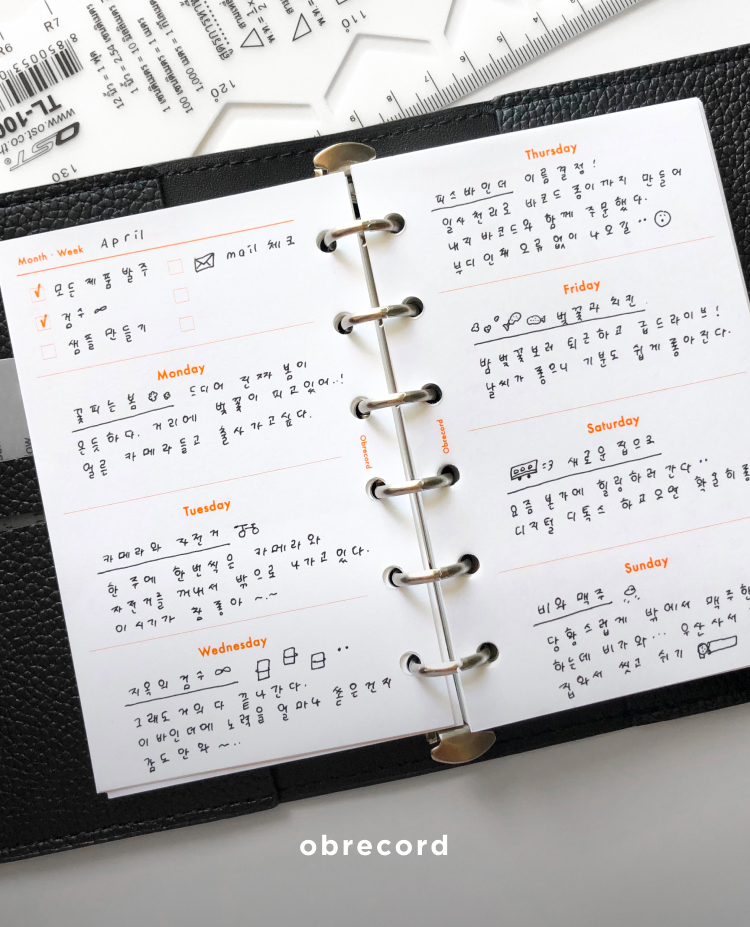 R6
R7
8850053
TL-100
www.ost.co.th
OST
130
120°
110°
1
2
3
4
5
6
7
8
9
Month · Week April
모든 제품 발주
검수 ∞
샘플 만들기
mail 체크
Monday
꽃피는 봄 드디어 진짜 봄이
온듯하다. 거리에 벚꽃이 피고있어..!
얼른 카메라들고 출사가고싶다.
Tuesday
카메라와 자전거
한 주에 한번씩은 카메라와
자전거를 꺼내서 밖으로 나가고있다.
이시기가 참 좋아 ~.~
Wednesday
지옥의 검수 ∞
그래도 거의 다 끝나간다.
이 바인더에 노력을 얼마나 쏟은건지
잠도 안와 ~..
Obrecord
Obrecord
Thursday
피스바인더 이름결정!
일사천리로 바코드 종이까지 만들어
내지 바코드와 함께 주문했다.
부디 인쇄 오류 없이 나오길 ··
Friday
벚꽃과 치킨.
밤벚꽃보러 퇴근하고 급드라이브!
날씨가 좋으니 기분도 쉽게 좋아진다.
Saturday
:3 새로운 집으로
요즘 본가에 힐링하러 간다..
디지털 디톡스 하고오면
Sunday
비와 맥주
당황스럽게 밖에서 맥주한
하는데 비가와... 우산사서
집와서 씻고 쉬기
obrecord